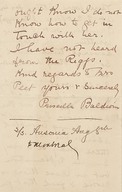 ought Know I do not
Know how to get in
Touch with her.
I have not heard
from the Riggs.
Kind regards to Mrs
Peet yours v sincerely
Priscilla Baldwin
Montreal